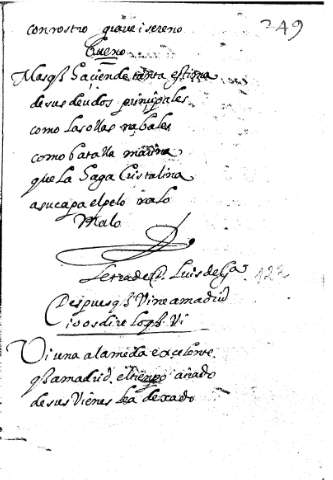 con rostro graue i sereno
249
Bueno
Mas q̃ haciende tanta estima
de sus deudos principales
como las ollas nabales
como batalla marina
que la haga cristalina
a su capa el pelo ralo
Malo
Letra de Luis de Ga
122
Despues q̃ Vine a madrid
i os dire lo q̃ Vi
Vi una alameda excelente
q̃ a madrid el tienpo airado
de sus Vienes le a dexado